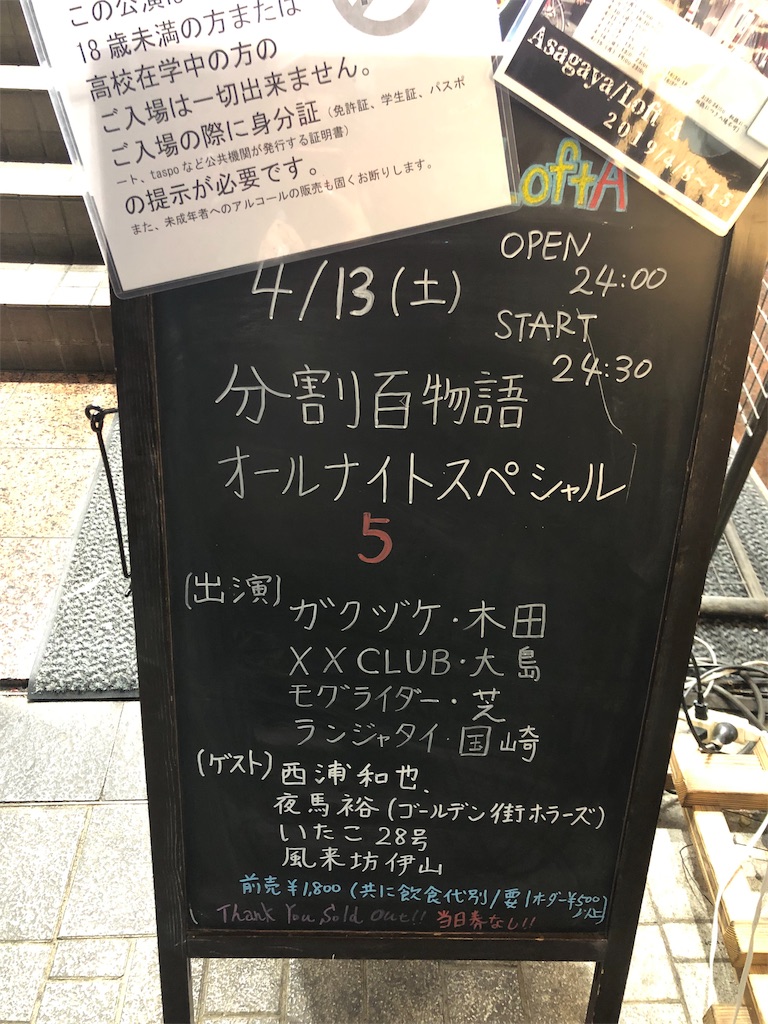 この公演は
18歳未満の方または
高校在学中の方の
ご入場は一切出来ません。
ご入場の際に身分証（免許証、学生証、パスポ
ート、taspoなど公共機関が発行する証明書）
の提示が必要です。
また、未成年者へのアルコールの販売も固くお断りします。
Asagaya/Loft A
2019/4/8-15
LoftA
OPEN
24:00
START
24:30
4/13(土)
分割百物語
オールナイトスペシャル
5
(出演)ガクヅケ・木田
XXCLUB・大島
モグライダー・芝
ランジャタイ・国崎
(ゲスト)西浦和也、
夜馬裕(ゴールデン街ホラーズ)
いたこ28号
風来坊伊山
前売¥1,800(共に飲食代別/要1オーダー¥500以上)
Thank You Sold Out!! 当日券なし!!